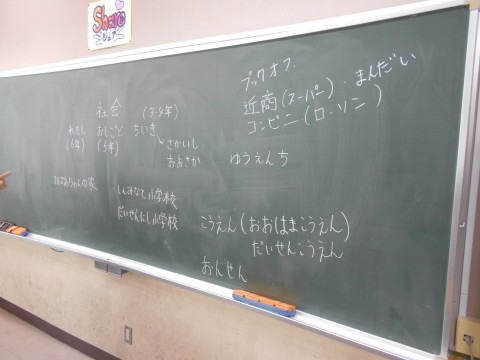 Share
シェア
ブックオフ
近商(スーパー)・まんだい
コンビニ(ローソン)
社会 (3・4年)
わたし おしごと ちいき
(6年) (5年)
さかいし
おおさか
ゆうえんち
おばあちゃんの家
しんみなと小学校
だいせんにし小学校
こうえん(おおはまこうえん)
だいせんこうえん
おんせん